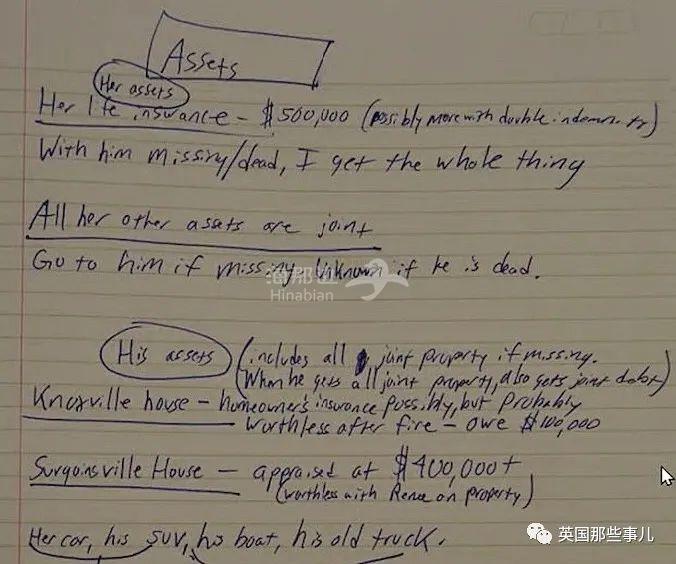 Assets
Her assets
Her life insurance - $500,000 (possibly more with double indemnity)
With him missing/dead, I get the whole thing
All her other assets are joint
Go to him if missing. Unknown if he is dead.
海那边
Hinabian
His assets
(includes all joint property if missing.
(When he gets all joint property, also gets joint debt)
Knoxville house - homeowner's insurance possibly, but probably
worthless after fire - owe $100,000
Surgoinsville House - appraised at $400,000+
(worthless with Renee on property)
Her car, his SUV, his boat, his old truck.
英国那些事儿